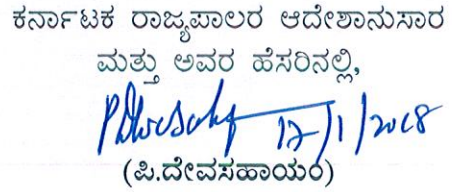 ಕರ್ನಾಟಕ ರಾಜ್ಯಪಾಲರ ಆದೇಶಾನುಸಾರ
ಮತ್ತು ಅವರ ಹೆಸರಿನಲ್ಲಿ,
12/1/2018
(ಪಿ.ದೇವಸಹಾಯಂ)